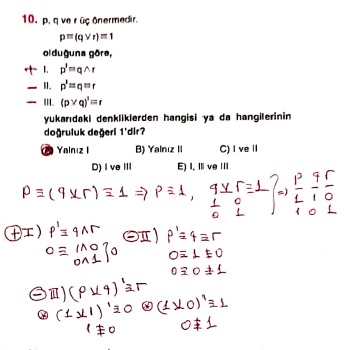 10. p, q ve r üç önermedir.
p≡(q ⊻ r)≡1
olduğuna göre,
+ I. p'≡q∧r
− II. p'≡q≡r
− III. (p ⊻ q)'≡r
yukarıdaki denkliklerden hangisi ya da hangilerinin
doğruluk değeri 1'dir?
A) Yalnız I B) Yalnız II C) I ve II
D) I ve III E) I, II ve III
p≡(q ⊻ r)≡1 ⇒ p≡1, q ⊻ r≡1 ⇒ p q r
1 0 1 1 0
0 1 1 0 1
+ I) p'≡q∧r − II) p'≡q≡r
0≡1∧0 } 0 0≡1≢0
0∧1 0≡0≢1
− III) (p ⊻ q)'≡r
* (1 ⊻ 1)'≡0 * (1 ⊻ 0)'≡1
1≢0 0≢1